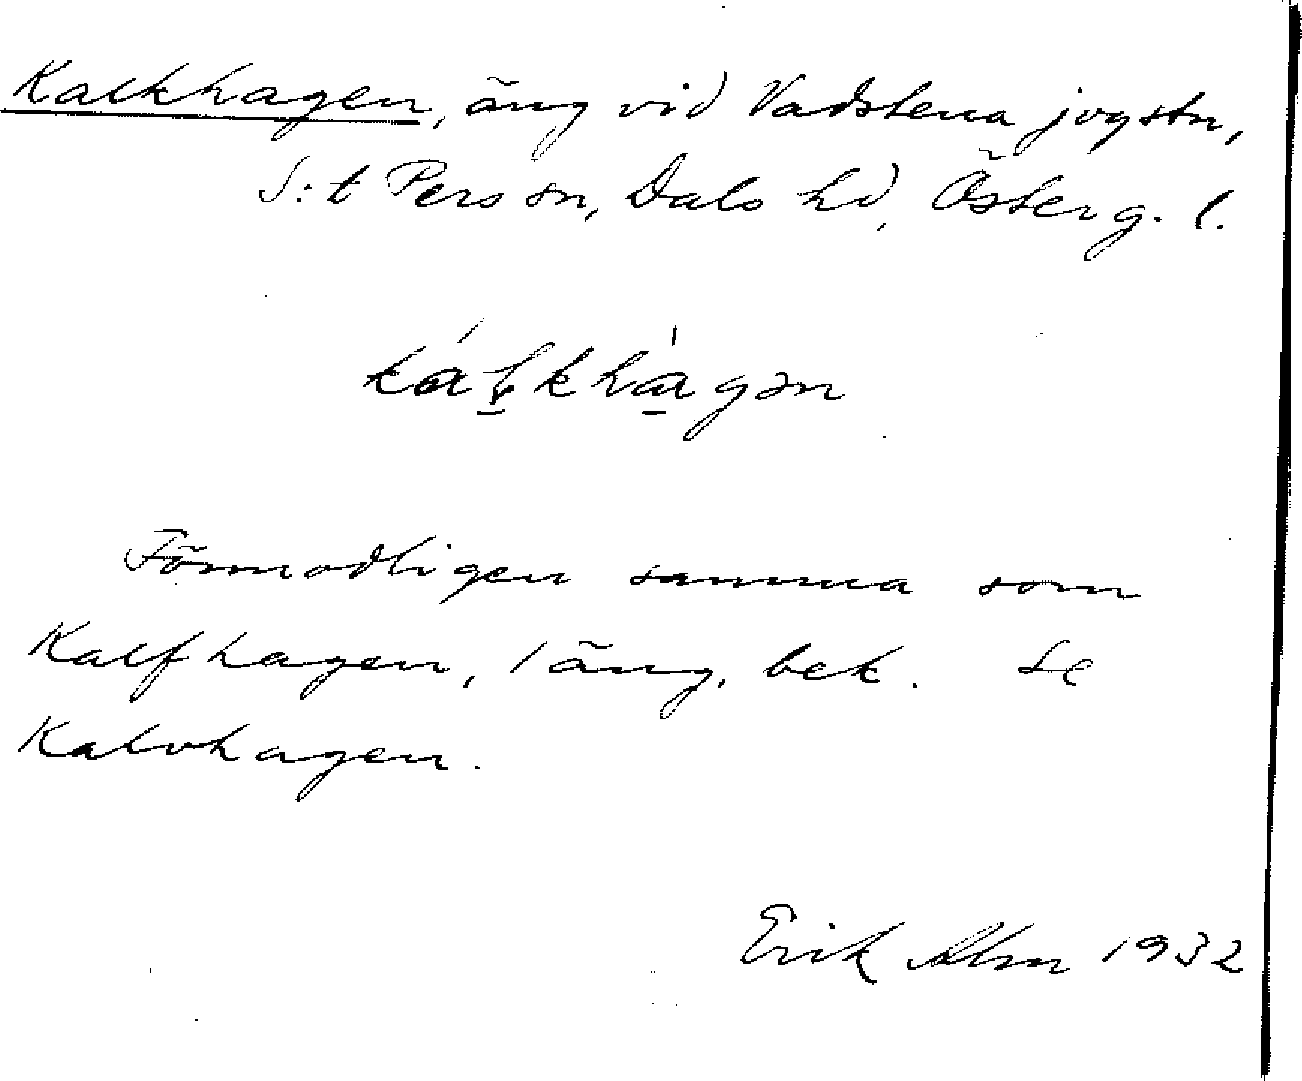 Kalkhagen, äng vid Vadstena jvgstn,
S:t Pers sn, Dals hd, Österg. l.
kálkhàgən
Förmodligen samma som
Kalfhagen, 1 äng, bek. Se
Kalvhagen.
Erik Alm 1932